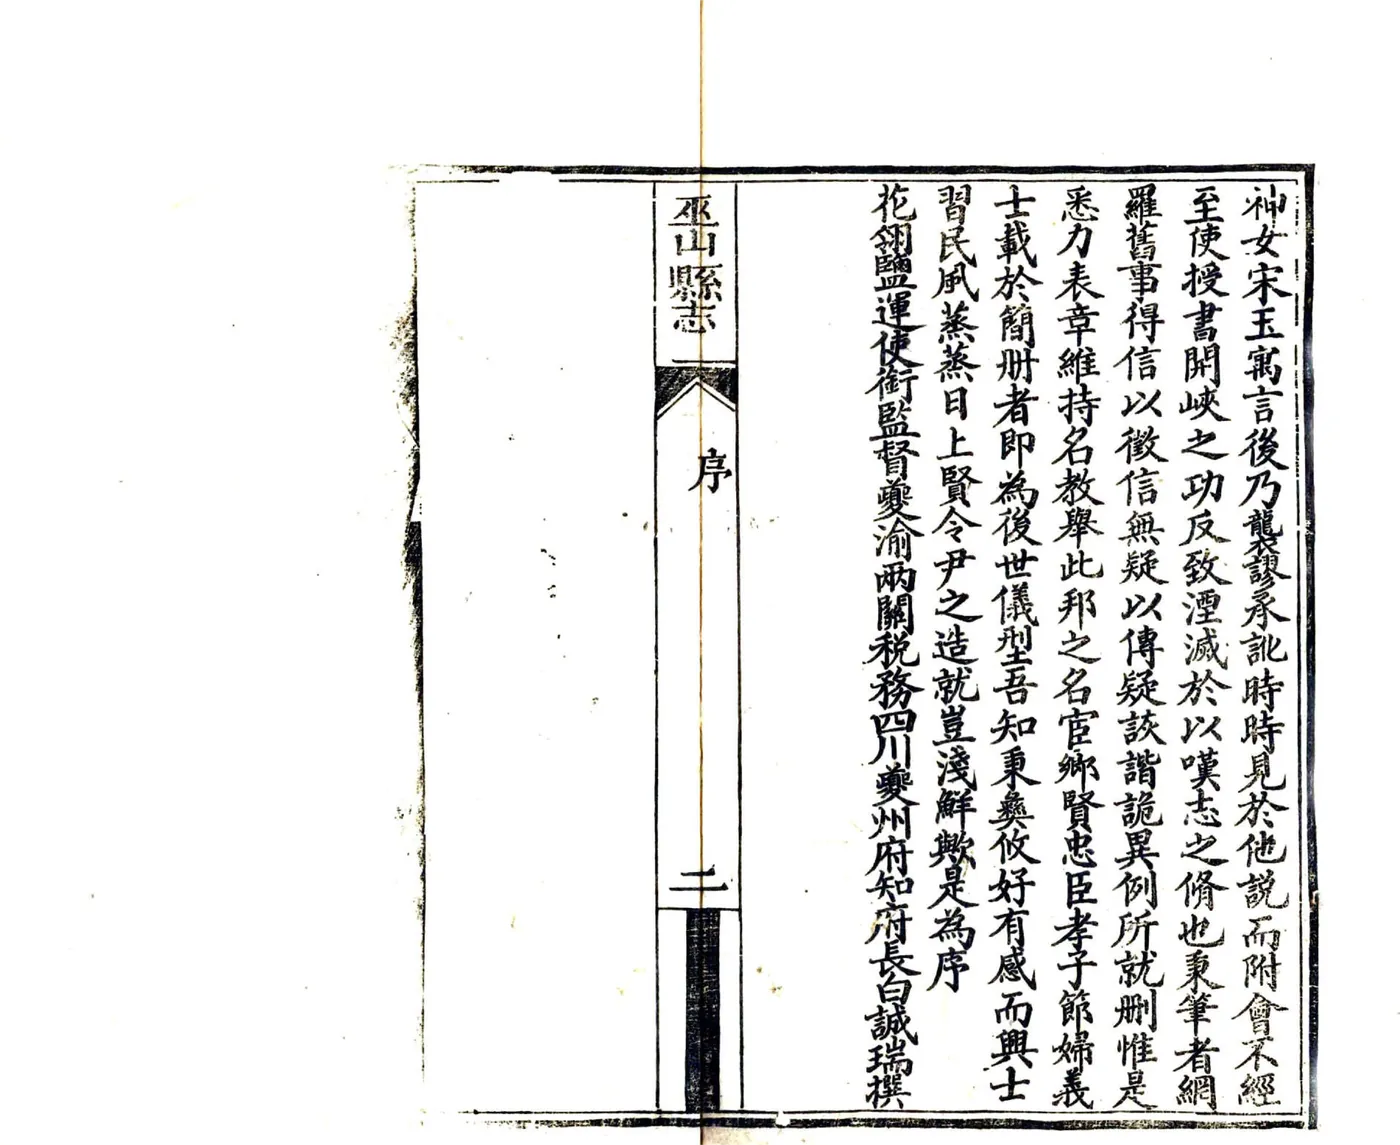 神女宋玉寓言後乃襲謬承訛時時見於他說而附會不經
至使授書開峽之功反致湮滅於以嘆志之脩也秉筆者網
羅舊事得信以徵信無疑以傳疑詼諧詭異例所就刪惟是
悉力表章維持名教舉此邦之名宦鄉賢忠臣孝子節婦義
士載於簡册者即為後世儀型吾知秉彝攸好有感而興士
習民風蒸蒸日上賢令尹之造就豈淺鮮歟是為序
花翎鹽運使銜監督夔渝兩關稅務四川夔州府知府長白誠瑞撰
巫山縣志
序
二